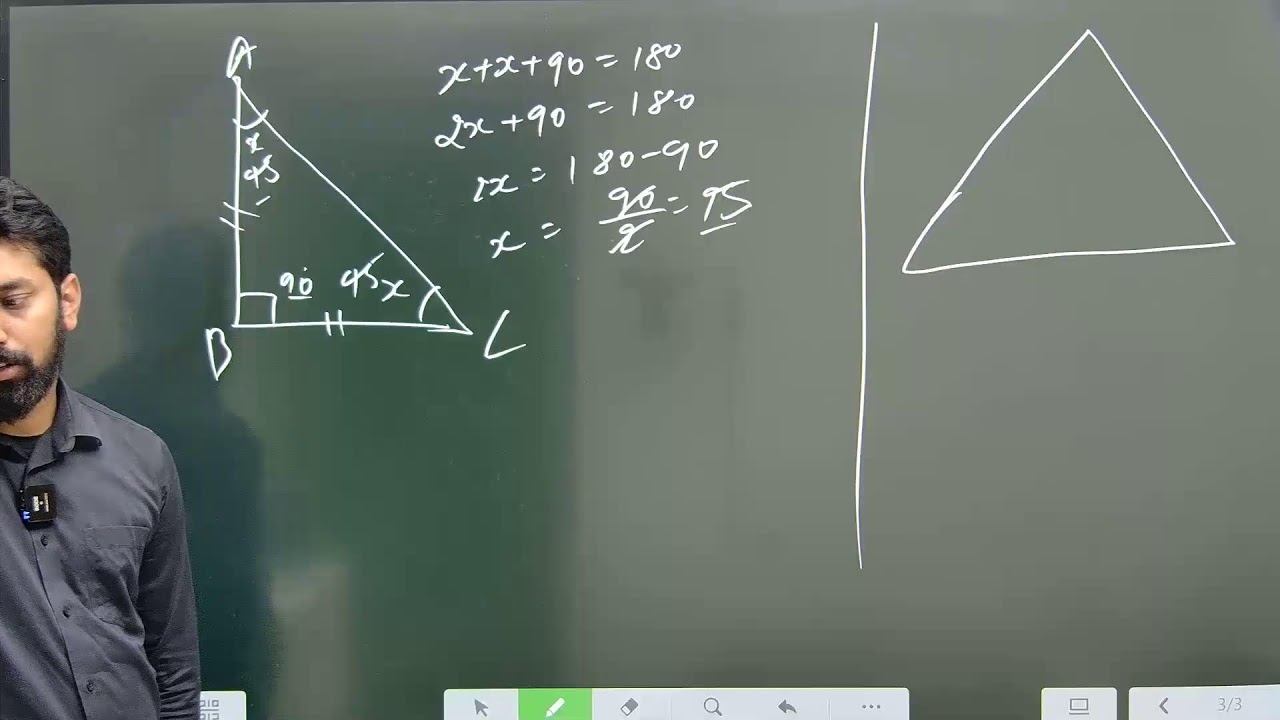 A
x
45
90° 45 x
B
C
x+x+90=180
2x+90=180
2x=180-90
x=90/2=45
3/3